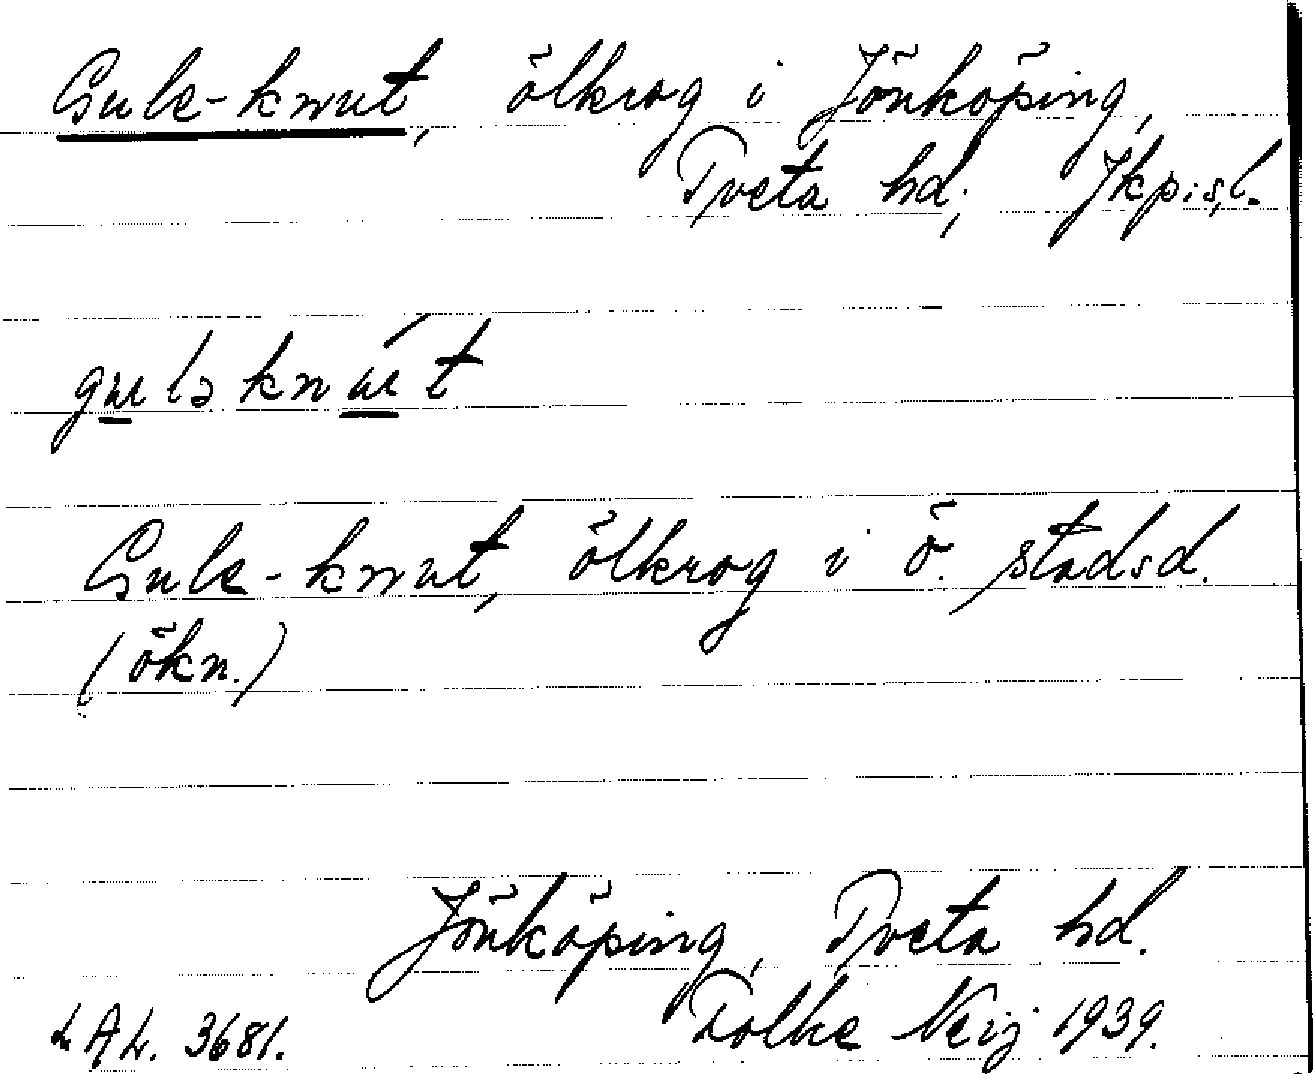 Gule-knut, ölkrog i Jönköping,
Tveta hd, Jkpi.s,l.
gulə knút
Gule-knut, ölkrog i ö. stadsd.
(ökn.)
Jönköping, Tveta hd.
LAL. 3681. Folke Neij 1939.